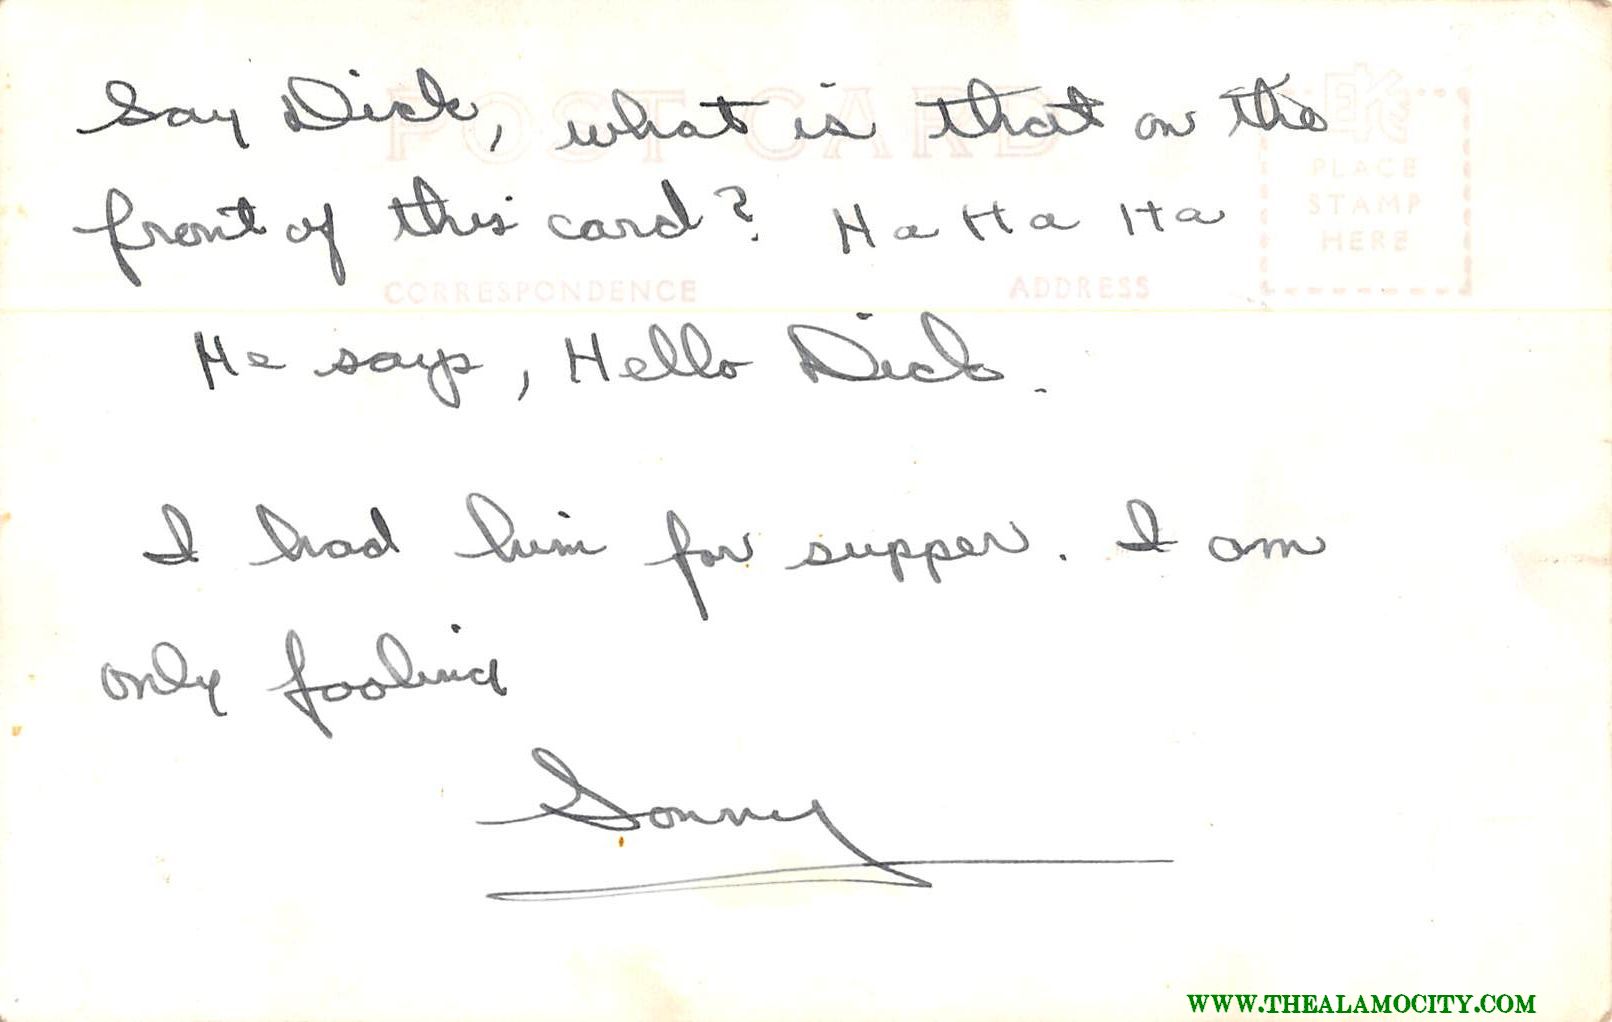 POST CARD
PLACE
STAMP
HERE
CORRESPONDENCE
ADDRESS
Say Dick, what is that on the
front of this card? Ha Ha Ha
He says, Hello Dick.
I had him for supper. I am
only fooling
Sonny
WWW.THEALAMOCITY.COM